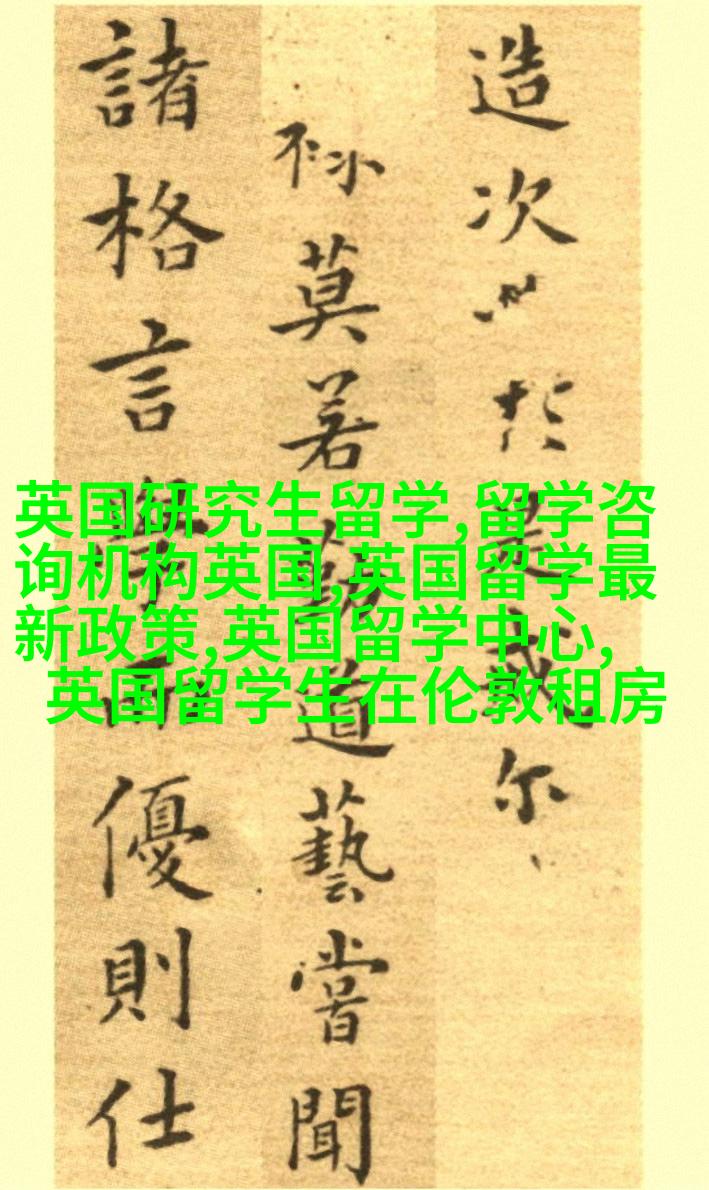 造次於是戒尔
莫若勤道藝嘗聞
諸格言學而優則仕
英国研究生留学,留学咨
询机构英国,英国留学最
新政策,英国留学中心,
英国留学生在伦敦租房